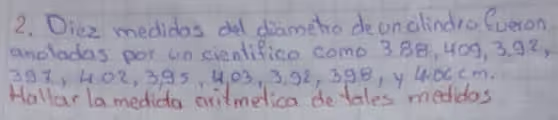 2. Diez medidas del diámetro de un cilindro fueron
anoladas por un cientifico como 3.88, 409, 3.92,
3.97, 4.02, 3,95, 4.03, 3.92, 3.98, y 4.06 cm.
Hallar la medida aritmetica de tales medidas